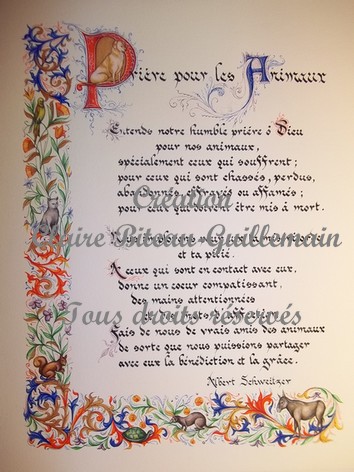 Prière pour les Animaux
Entends notre humble prière ô Dieu
pour nos animaux,
spécialement ceux qui souffrent;
pour ceux qui sont chassés, perdus,
abandonnés, effrayés ou affamés;
pour ceux qui doivent être mis à mort.
Création
Claire Guillemain
Tous droits réservés
et ta pitié.
A ceux qui sont en contact avec eux,
donne un coeur compatissant,
des mains attentionnées
Fais de nous de vrais amis des animaux
de sorte que nous puissions partager
avec eux la bénédiction et la grâce.
Albert Schweitzer